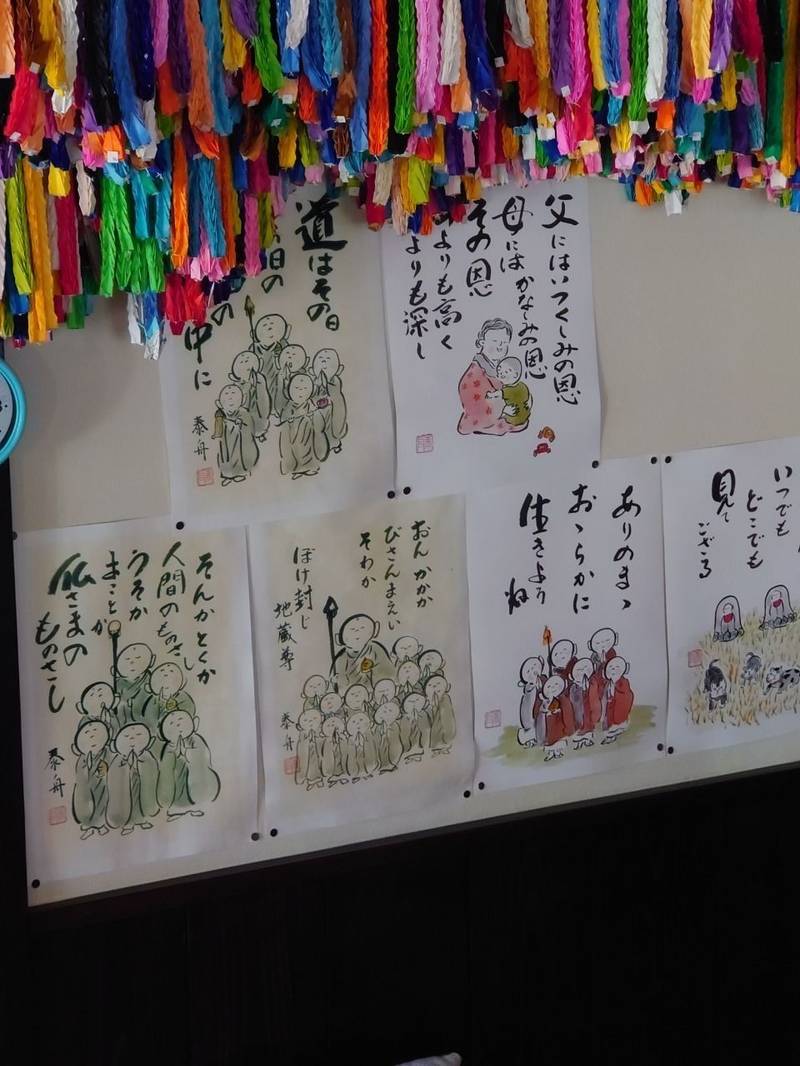 父にはいつくしみの恩
母にはかなしみの恩
その恩
よりも高く
よりも深し
道はその日
日の
の
中に
泰舟
いつでも
どこでも
見て
ござる
ありのまゝ
おゝらかに
生きようね
おん かかか
びさんまえい
そわか
ぼけ封じ
地蔵尊
泰舟
そんかとくか
人間のものさし
うそか
まことか
仏さまの
ものさし
泰舟